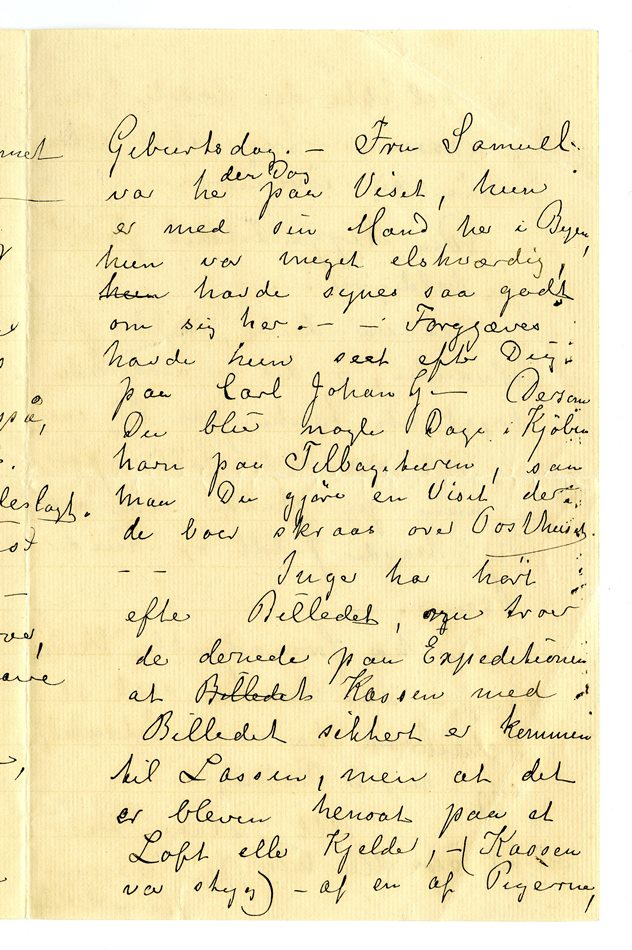 Geburtsdag. — Fru Samuel.
der Dag
var he paa Visit, hun
er med sin Mand her i Byen,
hun var meget elskværdig,
hun havde synes saa godt
om sig her. — — Forgjæves
havde hun seet efter Dig
paa Carl Johan G — (Dersom
Du blir nogle Dage i Kjöben
havn paa Tilbageturen, saa
maa Du gjöre en Visit der
de boer skraas over Posthuset.
— — Inge har hört
efter Billedet, men troer
de dernede paa Expeditionen
at Billedets Kassen med
Billedet sikkert er kommen
til Lassen, men at det
er bleven hensat paa et
Loft elle Kjelder, — (Kassen
var stygg) — af en af Pigerne,
met
på,
deslagt.